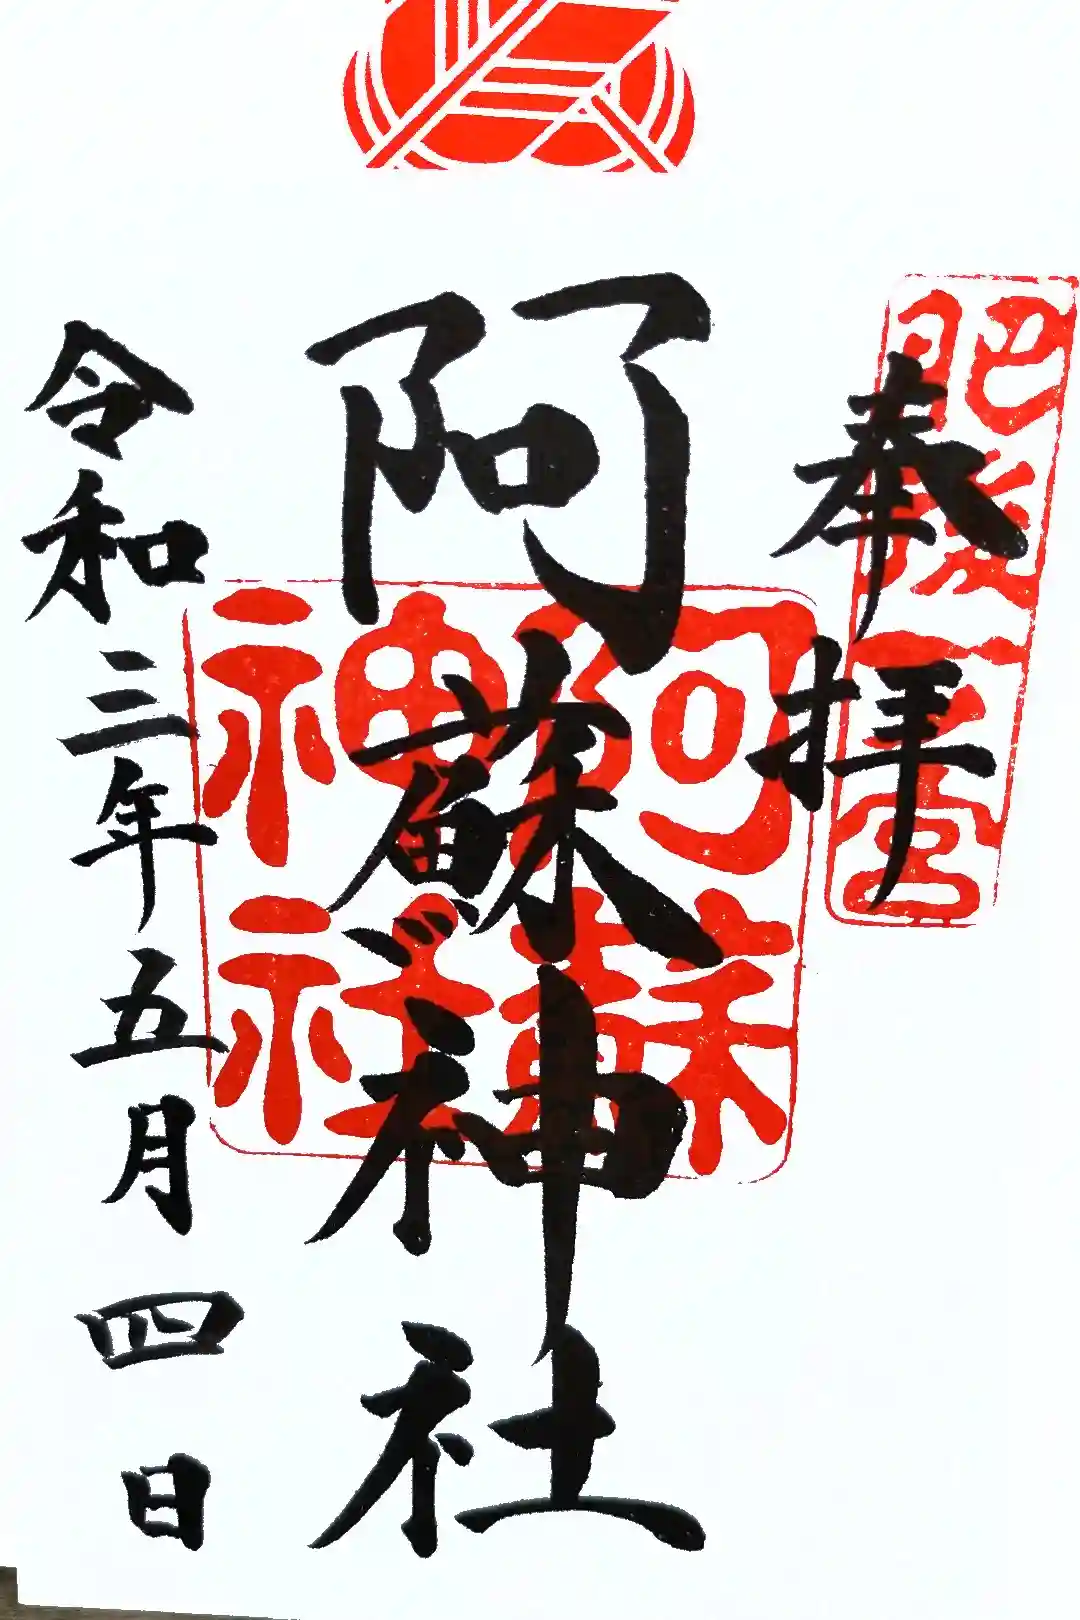 奉拝
肥後一宮
阿蘇神社
阿蘇神社
令和三年五月四日